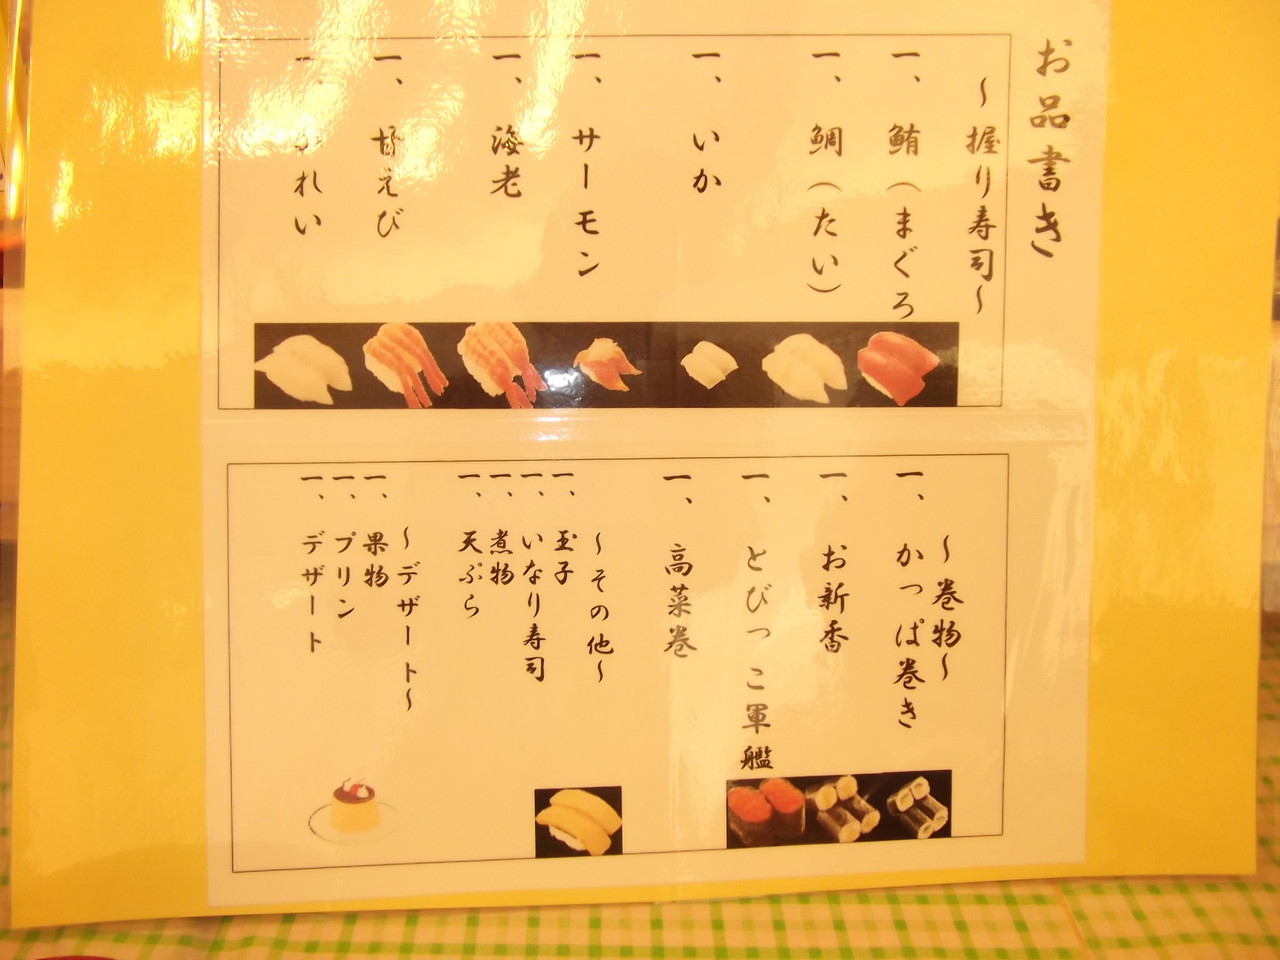 お品書き
〜握り寿司〜
一、鮪（まぐろ
一、鯛（たい）
一、いか
一、サーモン
一、海老
一、甘えび
一、かれい
〜巻物〜
一、かっぱ巻き
一、お新香
一、とびっこ軍艦
一、高菜巻
〜その他〜
一、玉子
一、いなり寿司
一、煮物
一、天ぷら
〜デザート〜
一、果物
一、プリン
一、デザート